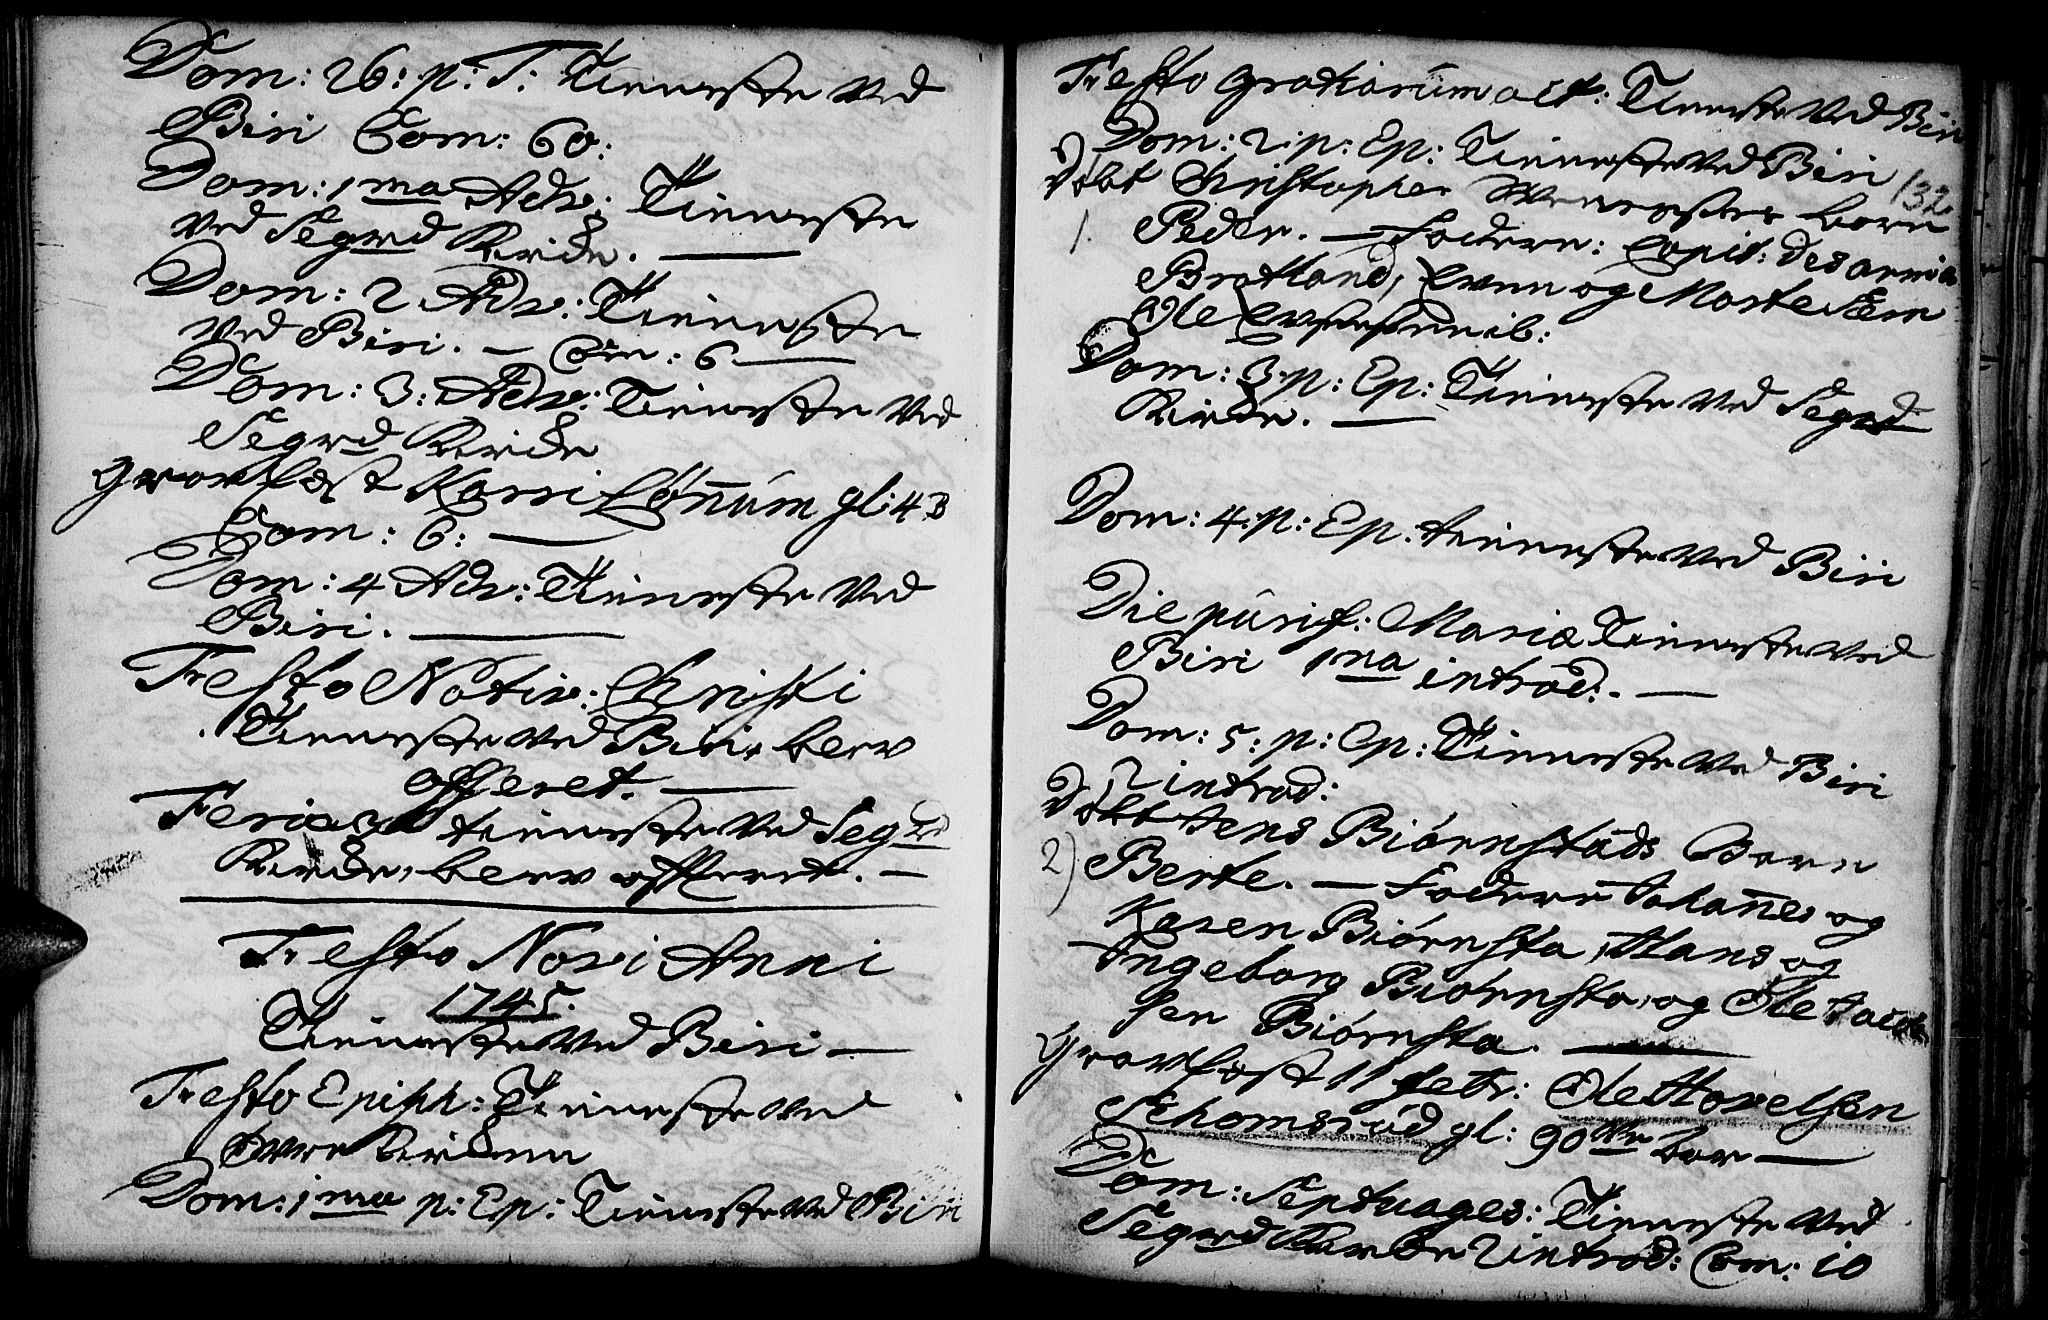 Dom: 26: p: T: Tienneste ved
Biri Com: 60:
Dom: 1ma Adv: Tienneste
ved Segrd Kirche.
Dom: 2 Adv: Tienneste
ved Biri. — Com: 6
Dom: 3: Adv: Tienneste ved
Segrd Kirche
Gravfæst Karri Lønnúm gl: 4
Com: 6:
Dom: 4 Adv: Tienneste ved
Biri.
Festo Nativ: Christi
Tienneste ved Biri, blev
offeret.
Feria tienneste ved Segrd
Kirche, blev offeret. —
Festo Novi Anni
1745.
Tienneste ved Biri —
Festo Epiph: Tienneste ved
Kirchen
Dom: 1ma p: Ep: Tienneste ved Biri
Festo Gratiarúm act: Tienneste ved Biri
Dom: 2: p: Ep: Tienneste ved Biri
132
døbt Christopher barn
1. Peder. — Faddere: Capit: des armis
Bratland, og Marte
Ole
Dom: 3: p: Ep: Tienneste ved Segrd
Kirche. —
Dom: 4: p: Ep. tienneste ved Biri
Die púrif: Mariæ Tienneste ved
Biri 1na introd: —
Dom: 5: p: Ep: Tienneste ved Biri
2 introd:
døbt Jens Biørnstads Barn
2) Berte. — Faddere Johannes og
Karen Biørnsta, Hans og
Ingeborg Biørnsta, og Ole Jacob
sen Biørnsta.
Gravfæst 11 Febr: Ole Havelsen
Schomsrúd gl: 90
Dom: Septuages: Tienneste ved
Segrd Kirche 2 introd: Com: 10